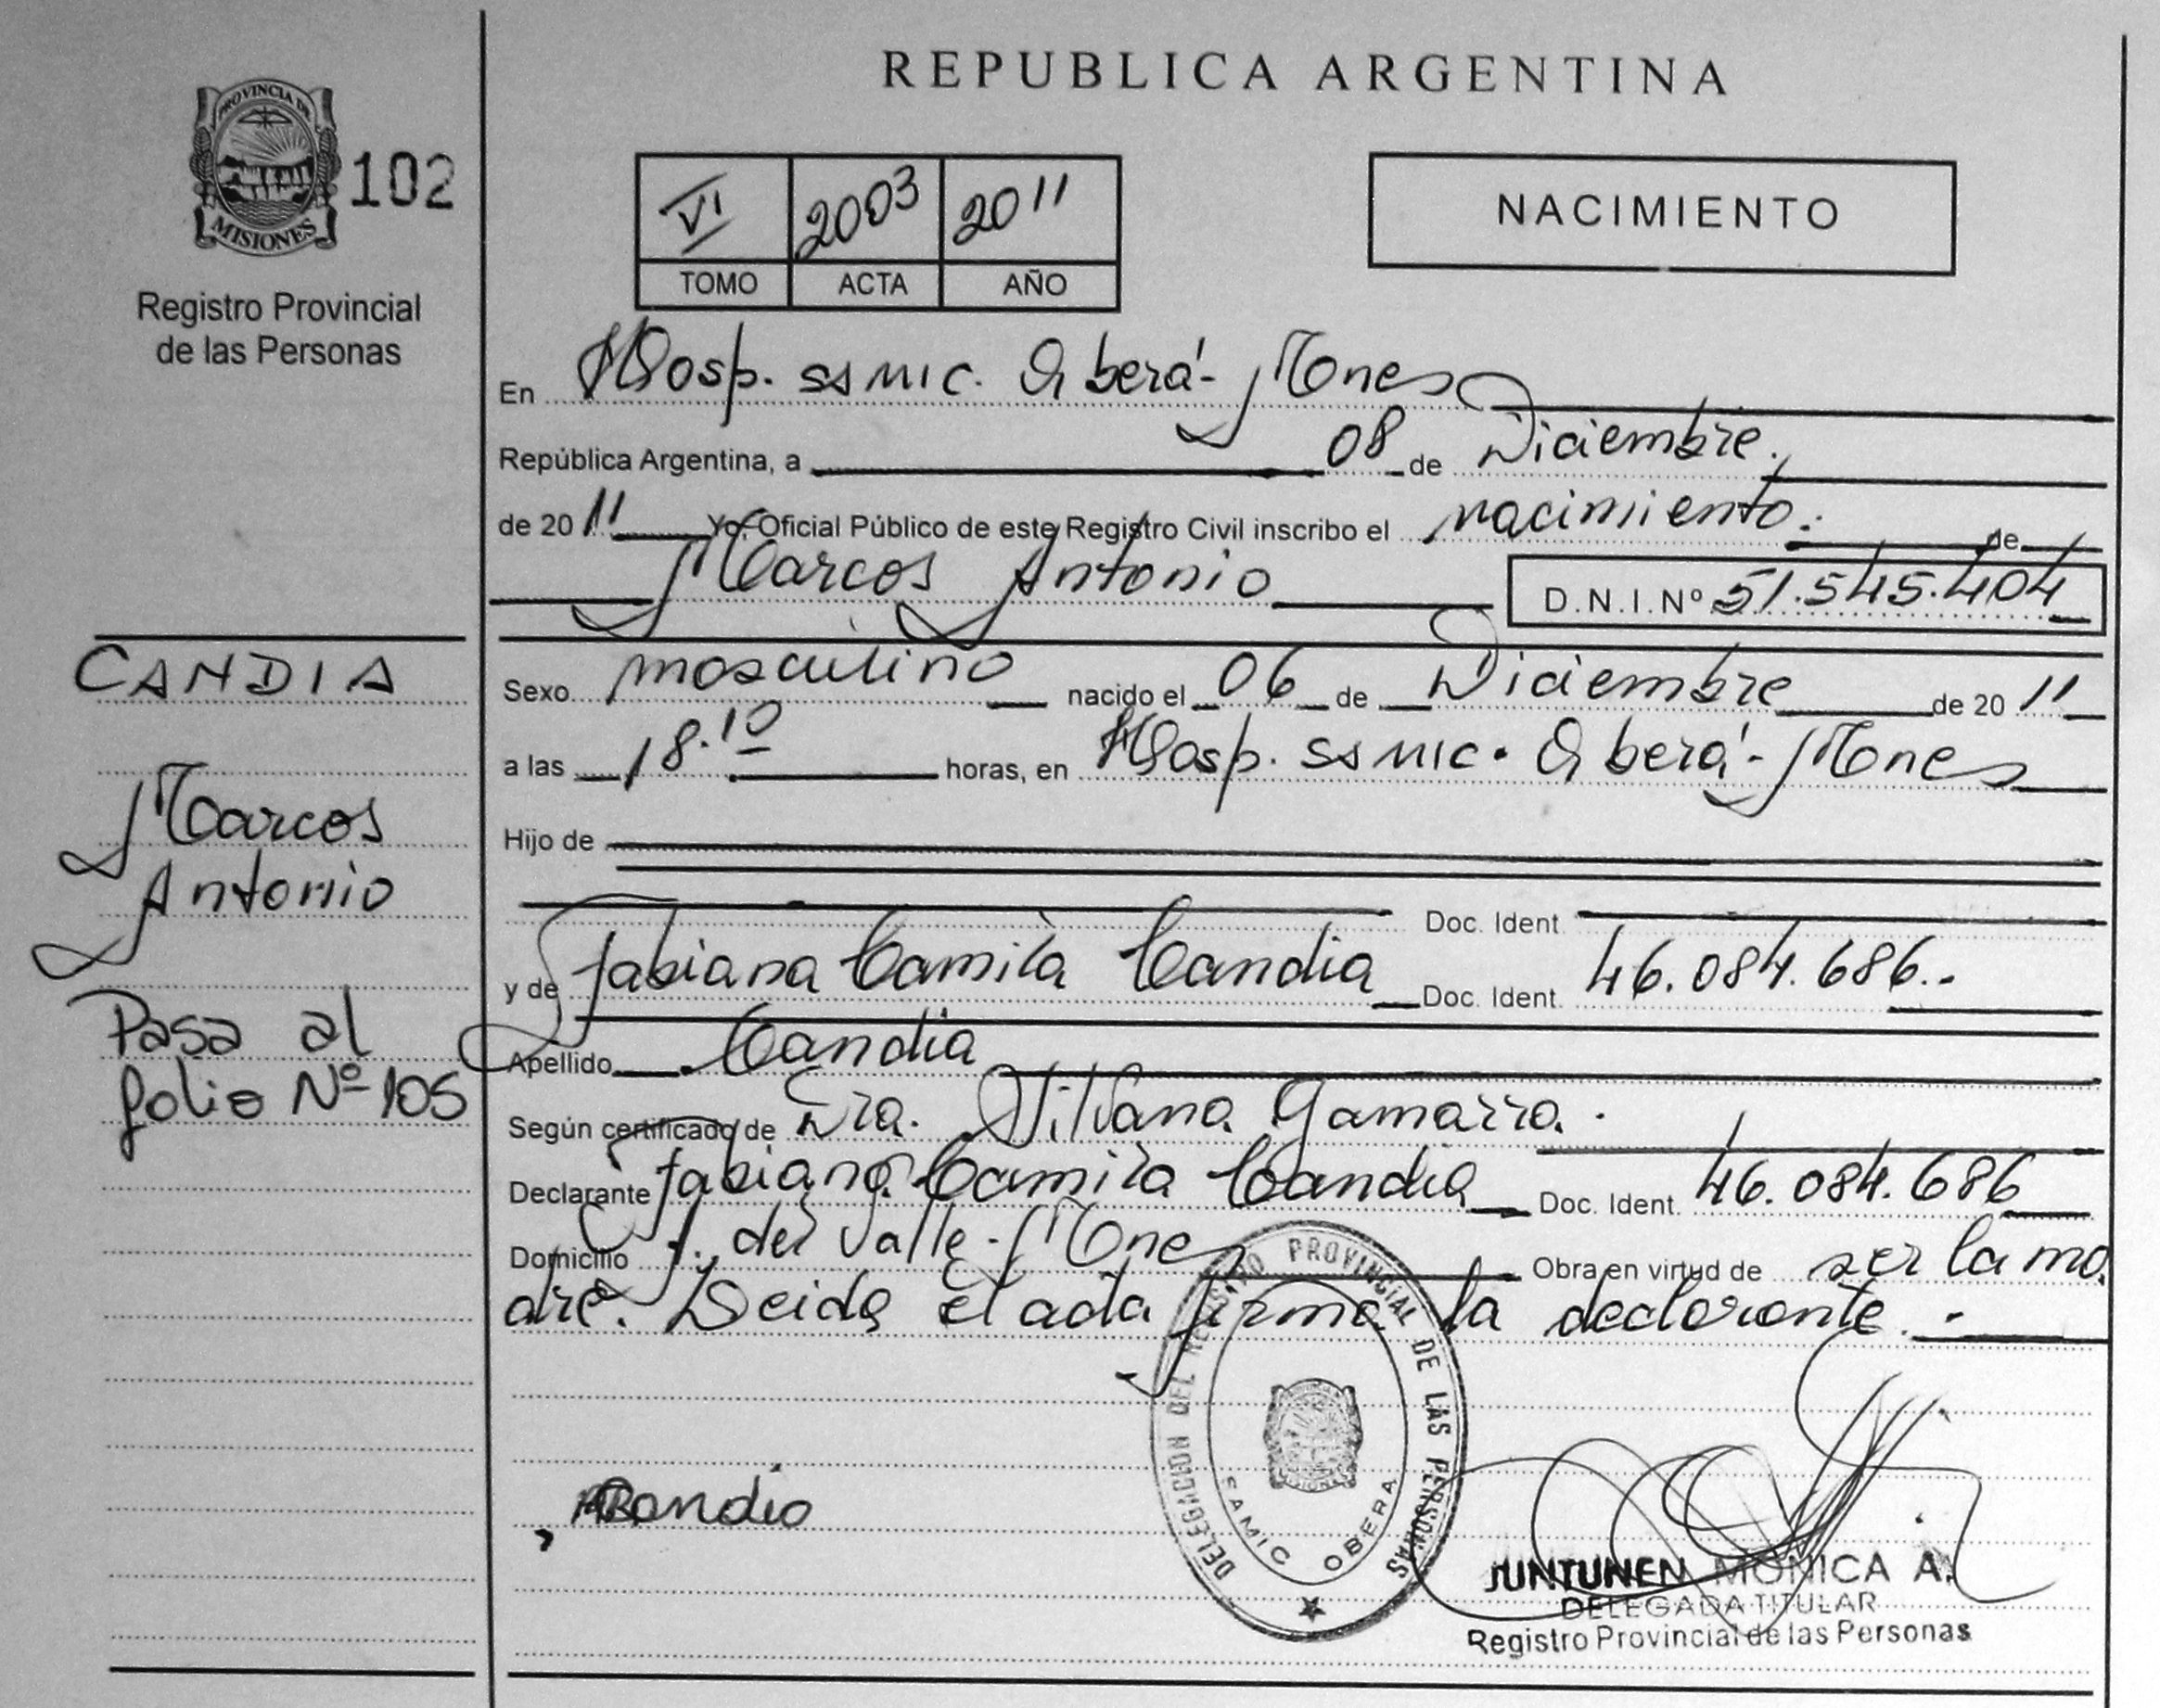 REPUBLICA ARGENTINA
PROVINCIA DE
MISIONES
102
Registro Provincial
de las Personas
VI 2003 2011
TOMO ACTA AÑO
NACIMIENTO
En Hosp. ssmic. Oberá - Mnes
República Argentina, a 08 de Diciembre.
de 20 11 Yo, Oficial Público de este Registro Civil inscribo el nacimiento. de
Marcos Antonio D.N.I.Nº 51.545.404
CANDIA
Marcos
Antonio
Pasa al
folio Nº 105
Sexo masculino nacido el 06 de Diciembre de 20 11
a las 18.10 horas, en Hosp. ssmic. Oberá - Mnes
Hijo de
Doc. Ident
y de Fabiana Camila Candia Doc. Ident. 46.084.686.-
Apellido Candia
Según certificado de Dra. Silvana Gamarra.
Declarante Fabiana Camila Candia Doc. Ident. 46.084.686
Domicilio del Valle - Mnes Obra en virtud de ser la ma
dre. Leida el acta firma la declarante. -
Candia
DELEGACION DEL REGISTRO PROVINCIAL DE LAS PERSONAS
SAMIC OBERA
JUNTUNEN MONICA A.
DELEGADA TITULAR
Registro Provincial de las Personas